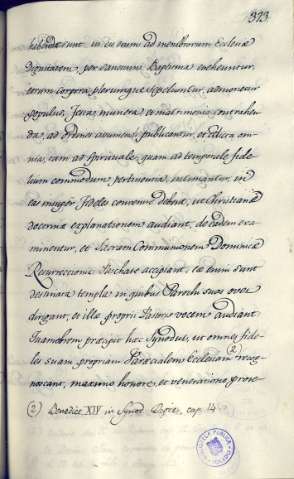 323
habenda sunt in eis enim ad membrorum Ecclesiæ
Dignitatem, per sanctum Baptisma evehuntur,
eorum corpora plerumque sepeliuntur, admonetur
populus, Festa, munera et matrimonia contrahen
da, ad ordines assumendi publicantur, et edicta om
nia, tam ad spirituale, quam ad temporale fide
lium commodum pertinentia, intimantur, in
eas insuper fideles convenire debent, ut Christianæ
doctrinæ explanationem audiant, de eadem exa
minentur, et Sacram Communionem Dominicæ
Resurrectionis Paschate accipiant, eæ enim sunt
destinata templa in quibus Parochi suas oves
dirigant, et illæ proprii Pastoris vocem audiant.
Quamobrem præcipit hæc Synodus, ut omnes fide
les suam propriam Parœcialem Ecclesiam (2) recog
noscant, maximo honore, et veneratione prose
(2) Benedic XIV in Synod. Diœc. cap. 14